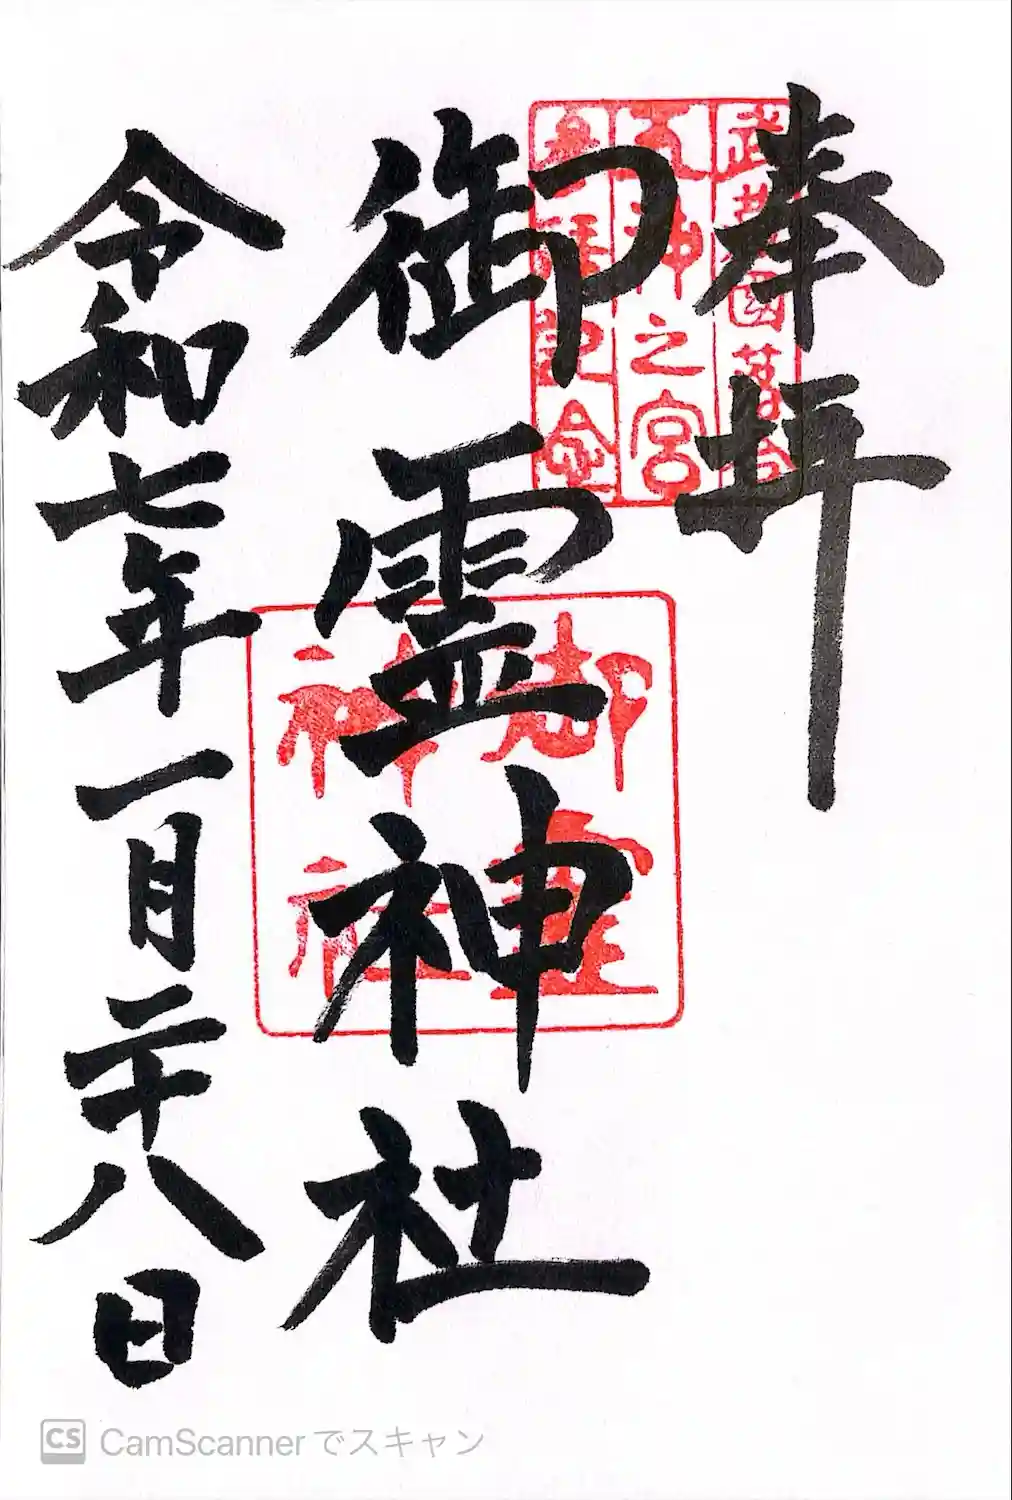 奉拝
武蔵国落合
五神之宮
参拝記念
御霊神社
御霊
神社
令和七年一月二十八日
CS CamScannerでスキャン